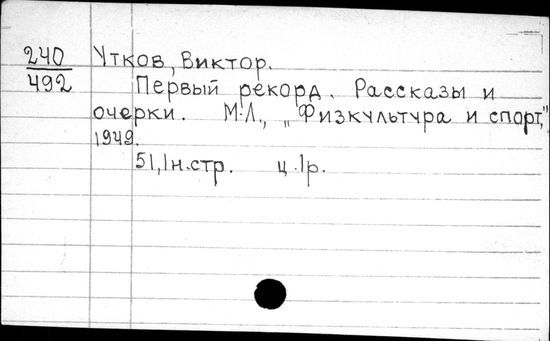 240 Утков, Виктор.
492 Первый рекорд. Рассказы и
очерки. М.-Л., „Физкультура и спорт,"
1949.
51, 1 н.стр. ц. 1р.